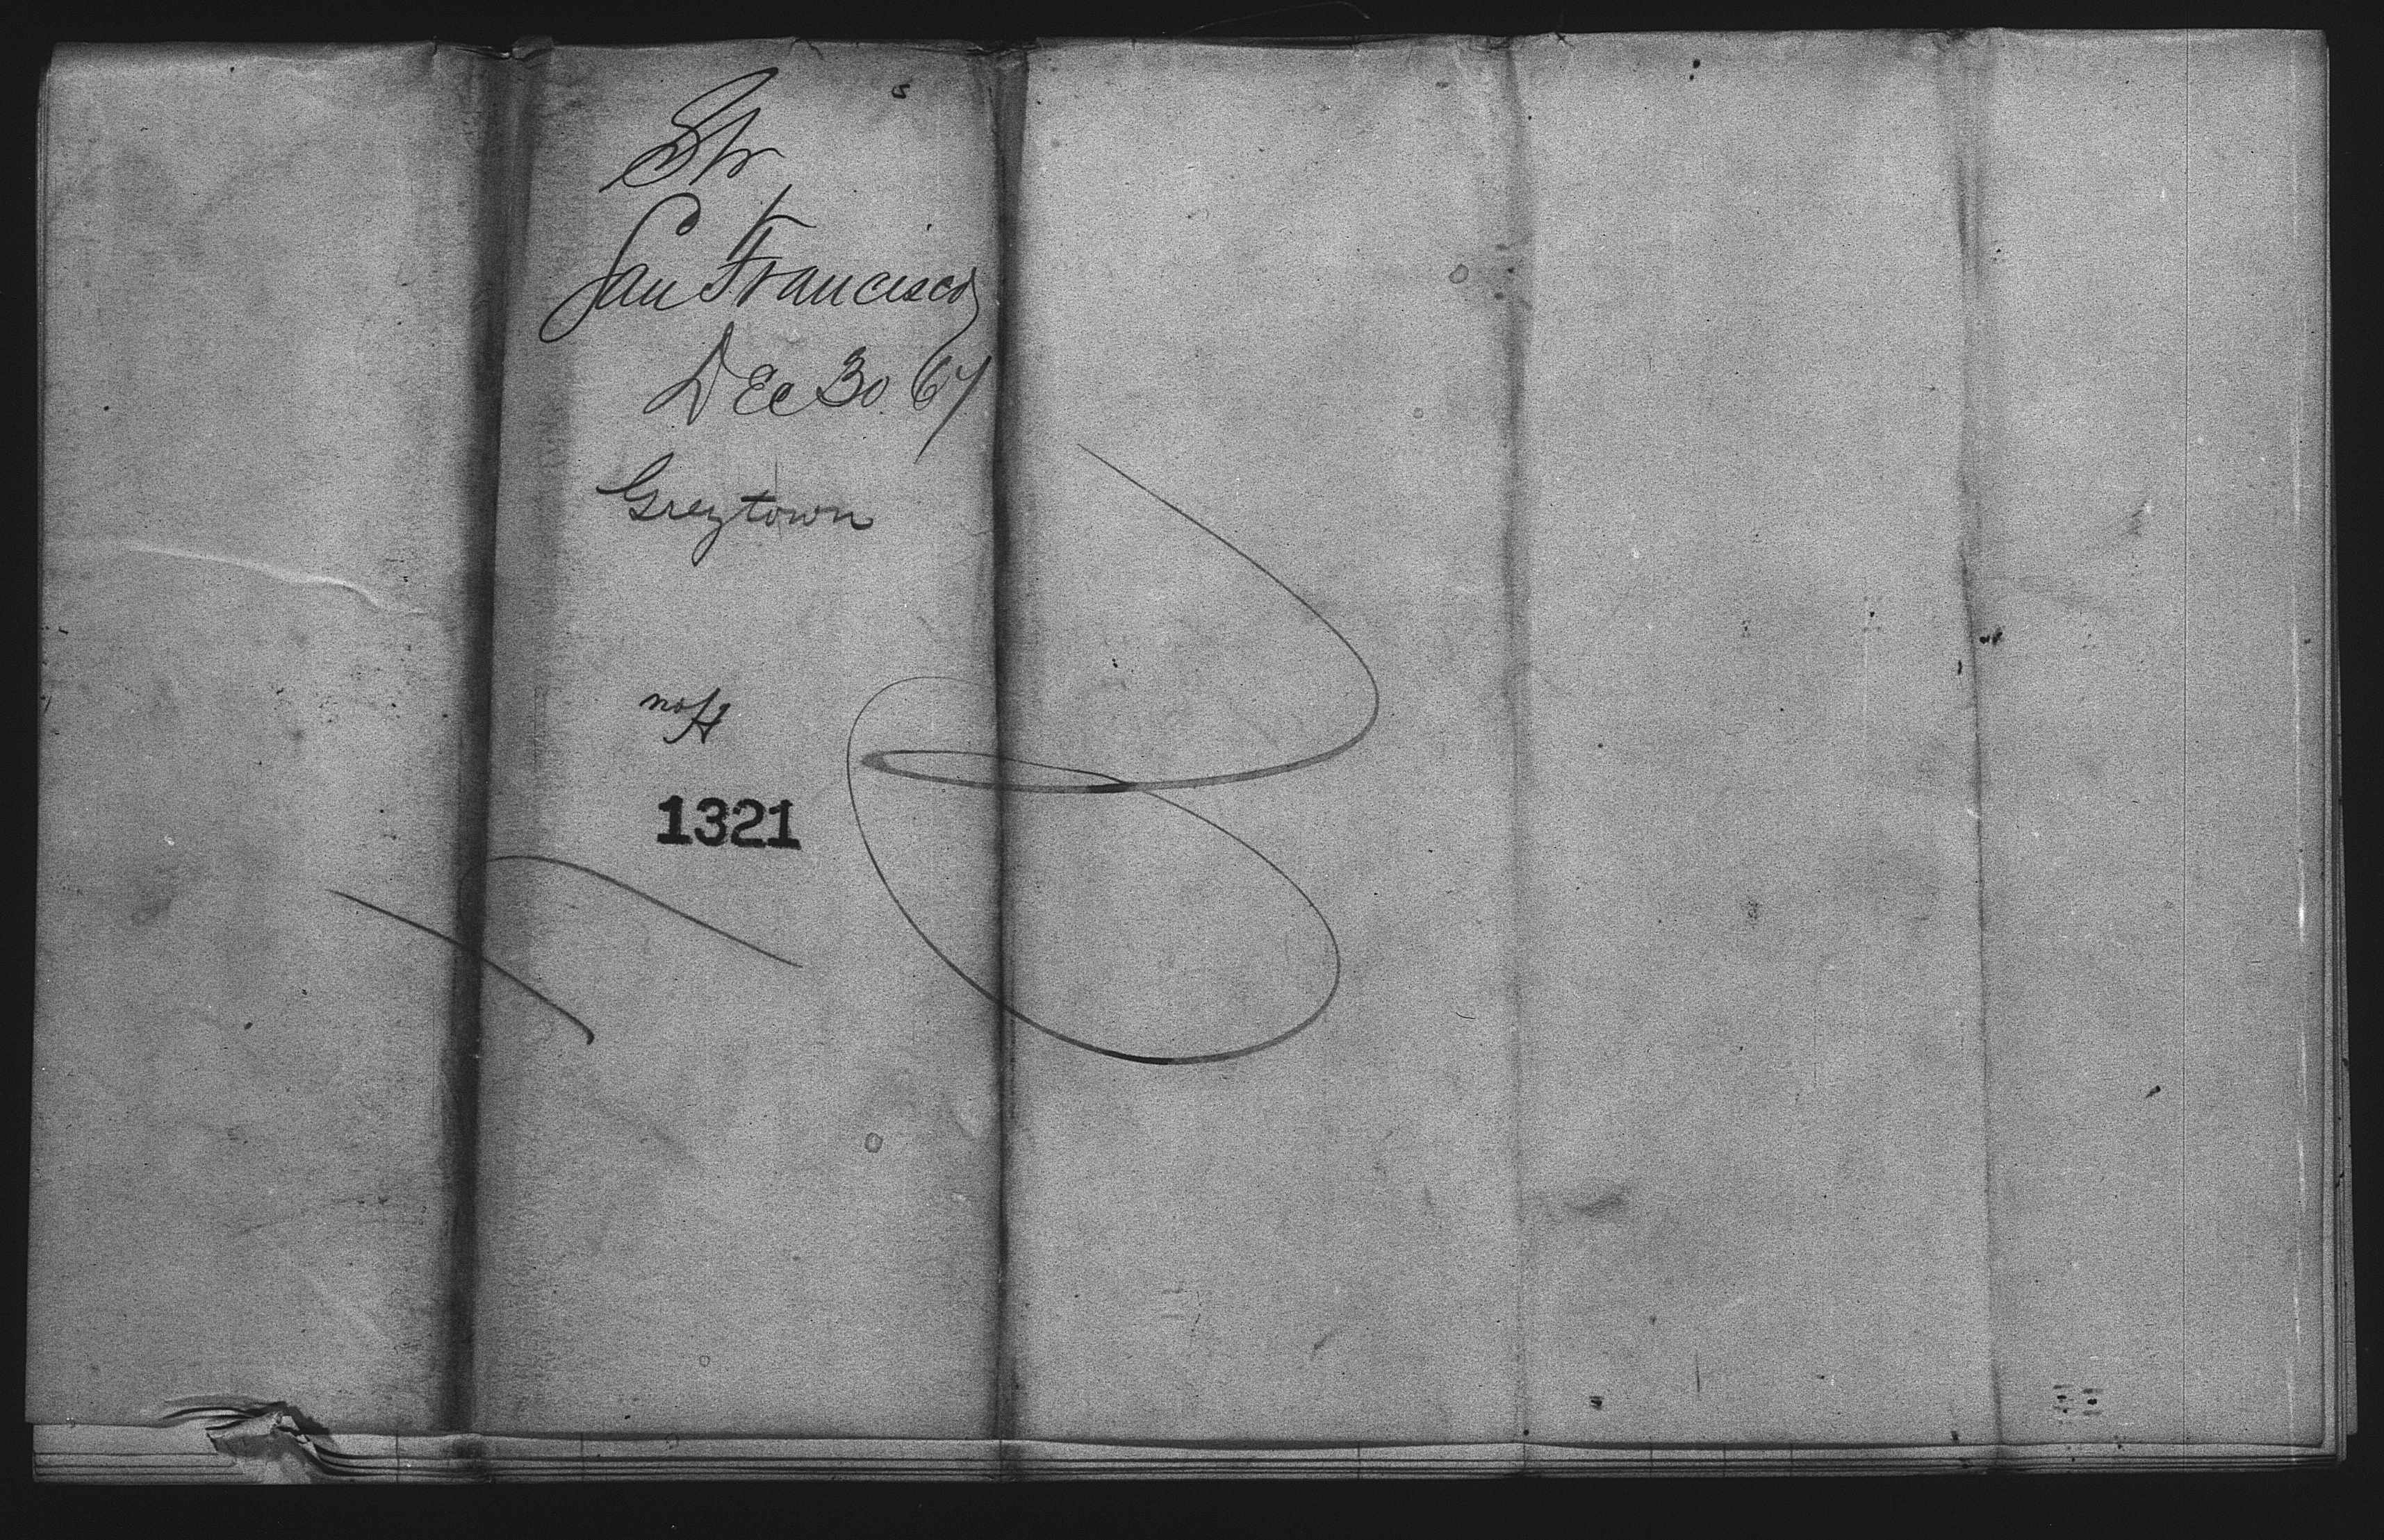 Str
San Francisco
Dec 30. 67
Greytown
1321